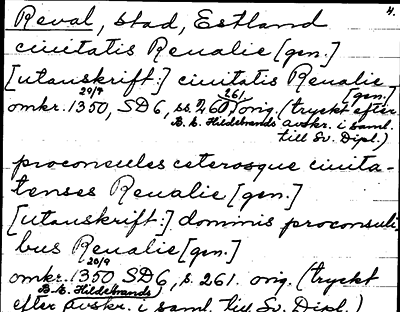 4.
Reval, stad, Estland
ciuitatis Reualie [gen.]
[utanskrift:] ciuitatis Reualie
[gen.]
omkr. 20/9 1350, SD 6, ss. 260, 261 orig. (tryckt efter
B. E. Hildebrands avskr. i saml.
till Sv. Dipl.)
proconsules ceterosque ciuita-
tenses Reualie [gen.]
[utanskrift:] dominis proconsuli,
bus Reualie [gen.]
omkr. 20/9 1350 SD 6, s. 261. orig. (tryckt
B. E. Hildebrands
efter avskr. i saml. till Sv. Dipl.)